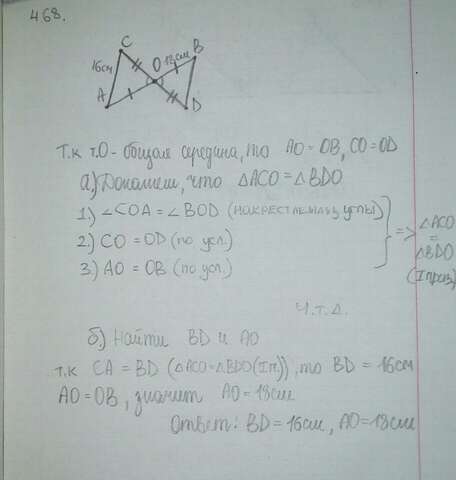 468.
C
16см
A
O
13см
B
D
т.к т.О - общая середина, то AO = OB, CO = OD
а) Докажем, что △ACO = △BDO
1) ∠COA = ∠BOD (накрест лежащ углы)
2.) CO = OD (по усл.)
3.) AO = OB (по усл.)
=> △ACO
=
△BDO
(I призн)
Ч.т.д.
б.) Найти BD и AO
т.к CA = BD (△ACO=△BDO(Iп)), то BD = 16см
AO = OB, значит AO = 13см
Ответ: BD = 16см, AO = 13см